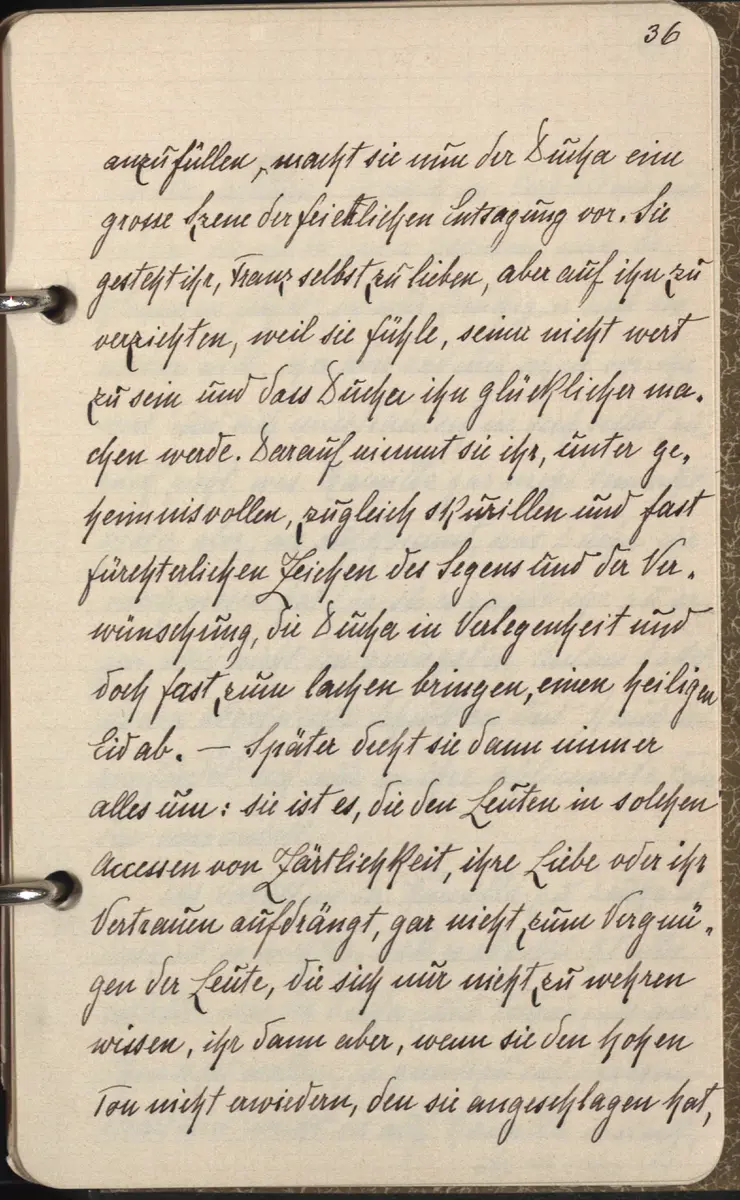 36
anzufüllen, macht sie nun der Ducha eine
grosse Szene der feierlichen Entsagung vor. Sie
gesteht ihr, Franz selbst zu lieben, aber auf ihn zu
verzichten, weil sie fühle, seiner nicht wert
zu sein und dass Ducha ihn glücklicher ma-
chen werde. Darauf nimmt sie ihr, unter ge-
heimnisvollen, zugleich skurillen und fast
fürchterlichen Zeichen des Segens und der Ver-
wünschung, die Ducha in Verlegenheit und
doch fast zum lachen bringen, einen heiligen
Eid ab. — Später dreht sie dann immer
alles um: sie ist es, die den Leuten in solchen
Accessen von Zärtlichkeit, ihre Liebe oder ihr
Vertrauen aufdrängt, gar nicht zum Vergnü-
gen der Leute, die sich nur nicht zu wehren
wissen, ihr dann aber, wenn sie den hohen
Ton nicht erwiedern, den sie angeschlagen hat,